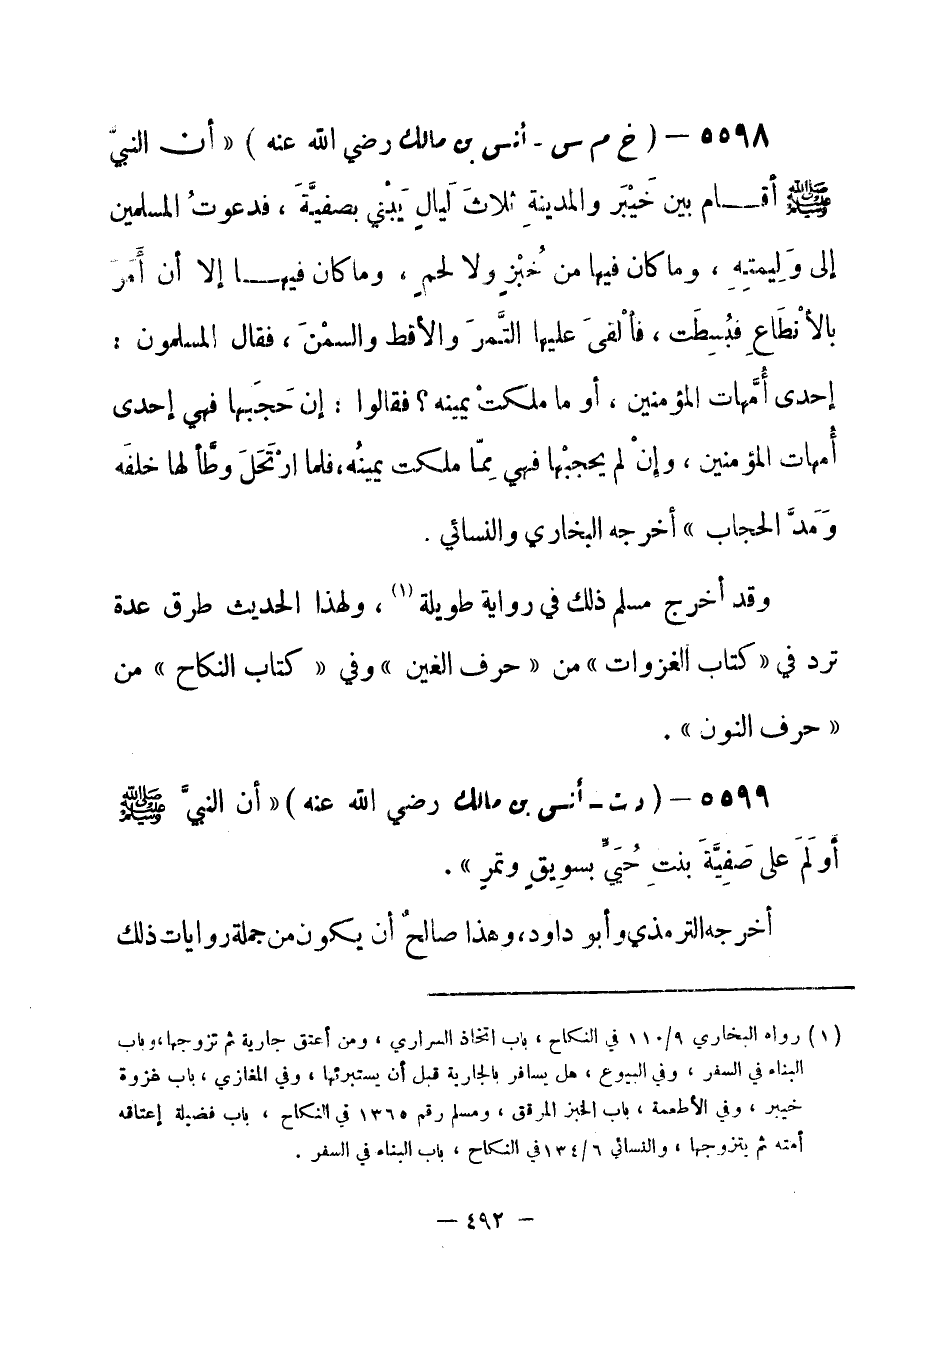 ٥٥٩٨ – ( خ م س - أنس بن مالك رضي الله عنه ) « أن النبيَّ
ﷺ أقـــام بين خَيْبَرَ والمدينةِ ثلاثَ لَيالٍ يَبْني بصفيَّةَ ، فدعوتُ المسلمين
إلى وَلِيمتِهِ ، وما كان فيها من خُبْزٍ ولا لحمٍ ، وما كان فيهـــا إلا أن أَمَرَ
بالأنْطَاعِ فبُسِطَت ، فألْقى عليها التَّمرَ والأقط والسمْنَ ، فقال المسلمون :
إحدى أُمَّهات المؤمنين ، أو ما ملكتْ يمينه ؟ فقالوا : إن حَجَبها فهي إحدى
أُمهات المؤمنين ، وإنْ لم يحجبْها فهي مِمّا ملكت يمينُه ، فلما ارْتَحَلَ وطَّأ لها خلفَه
وَمَدَّ الحجاب » أخرجه البخاري والنسائي .
وقد أخرج مسلم ذلك في رواية طويلة (١) ، ولهذا الحديث طرق عدة
ترد في « كتاب الغزوات » من « حرف الغين » وفي « كتاب النكاح » من
« حرف النون » .
٥٥٩٩ – ( د ت - أنس بن مالك رضي الله عنه ) « أن النبيَّ ﷺ
أَولَمَ على صَفِيَّةَ بنتِ حُيَيٍّ بسويقٍ وتمرٍ » .
أخرجه الترمذي وأبو داود، وهذا صالحٌ أن يكون من جملة روايات ذلك
(١) رواه البخاري ١١٠/٩ في النكاح ، باب اتخاذ السراري ، ومن أعتق جارية ثم تزوجها، وباب
البناء في السفر ، وفي البيوع ، هل يسافر بالجارية قبل أن يستبرئها ، وفي المغازي ، باب غزوة
خيبر ، وفي الأطعمة ، باب الخبز المرقق ، ومسلم رقم ١٣٦٥ في النكاح ، باب فضيلة إعتاقه
أمته ثم يتزوجها ، والنسائي ١٣٤/٦ في النكاح ، باب البناء في السفر .
– ٤٩٢ –